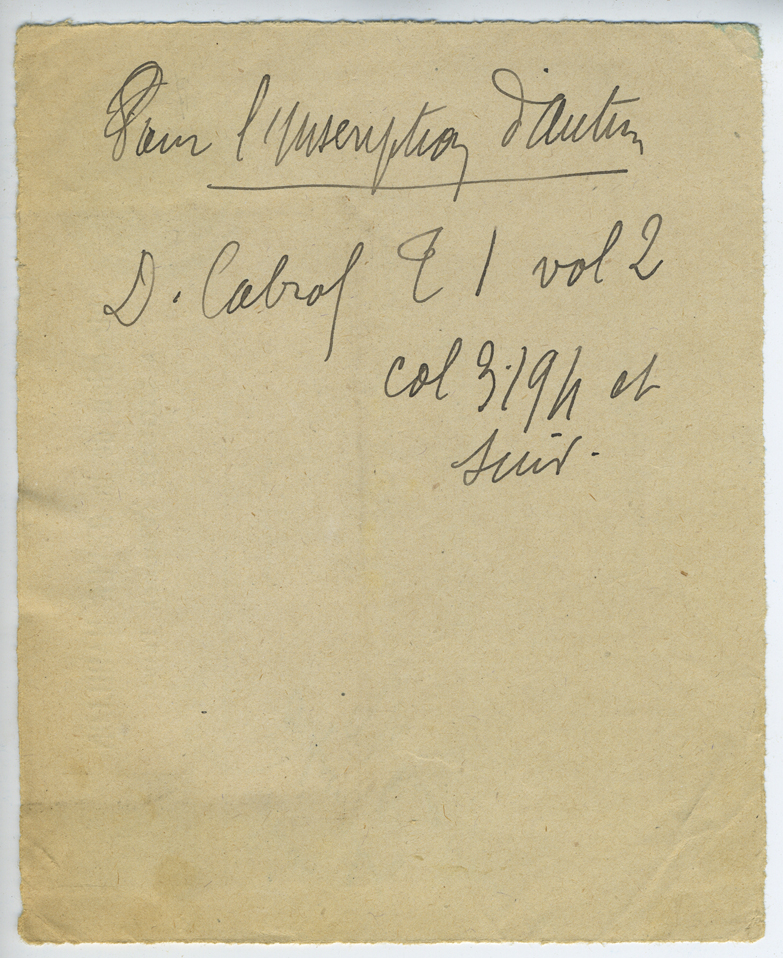 Pour l'Inscription d'Autun
D. Cabrol T 1 vol 2
col 3194 et
suiv.